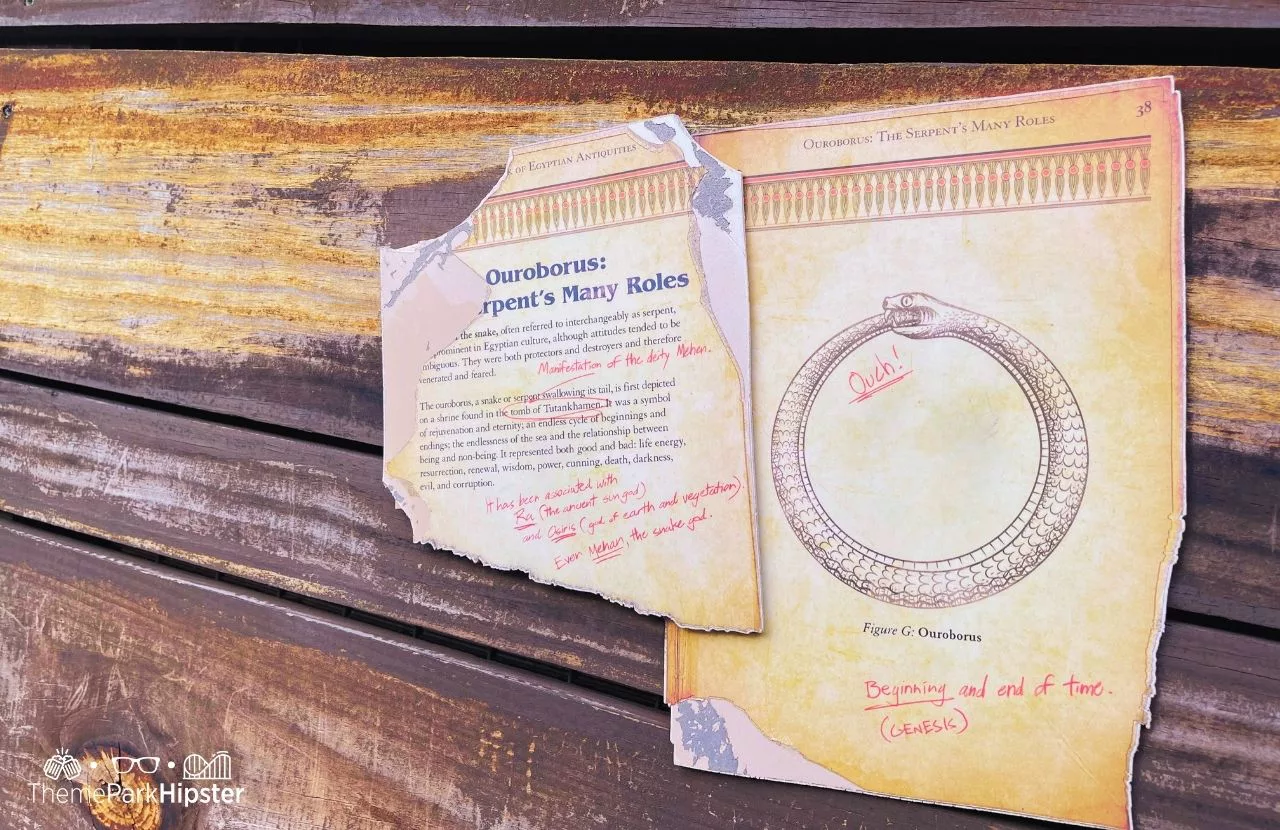 OF EGYPTIAN ANTIQUITIES
Ouroborus:
rpent's Many Roles
the snake, often referred to interchangeably as serpent,
prominent in Egyptian culture, although attitudes tended to be
mbiguous. They were both protectors and destroyers and therefore
venerated and feared.
Manifestation of the deity Mehen.
The ouroborus, a snake or serpent swallowing its tail, is first depicted
on a shrine found in the tomb of Tutankhamen. It was a symbol
of rejuvenation and eternity; an endless cycle of beginnings and
endings; the endlessness of the sea and the relationship between
being and non-being. It represented both good and bad: life energy,
resurrection, renewal, wisdom, power, cunning, death, darkness,
evil, and corruption.
It has been associated with
Ra (the ancient sun god)
and Osiris (god of earth and vegetation).
Even Mehan, the snake god.
OUROBORUS: THE SERPENT'S MANY ROLES
38
Ouch!
Figure G: Ouroborus
Beginning and end of time.
(GENESIS)
ThemeParkHipster